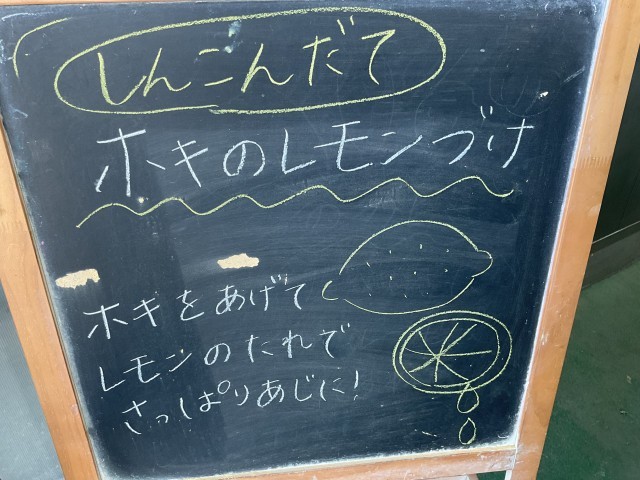 しんこんだて
ホキのレモンづけ
ホキをあげて
レモンのたれで
さっぱりあじに!